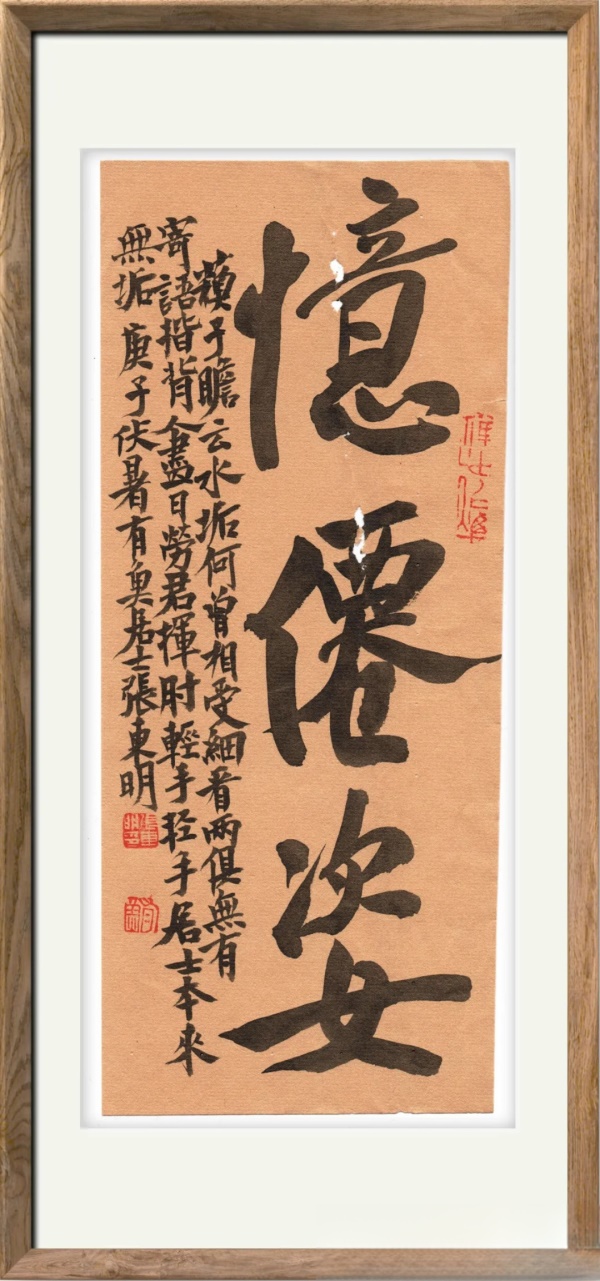 憶僊姿
蘓子瞻云水垢何曾相受細看兩俱無有
寄語揩背人盡日勞君揮肘輕手轻手居士本來
無垢 庚子伏暑有居士張東明
張東明印